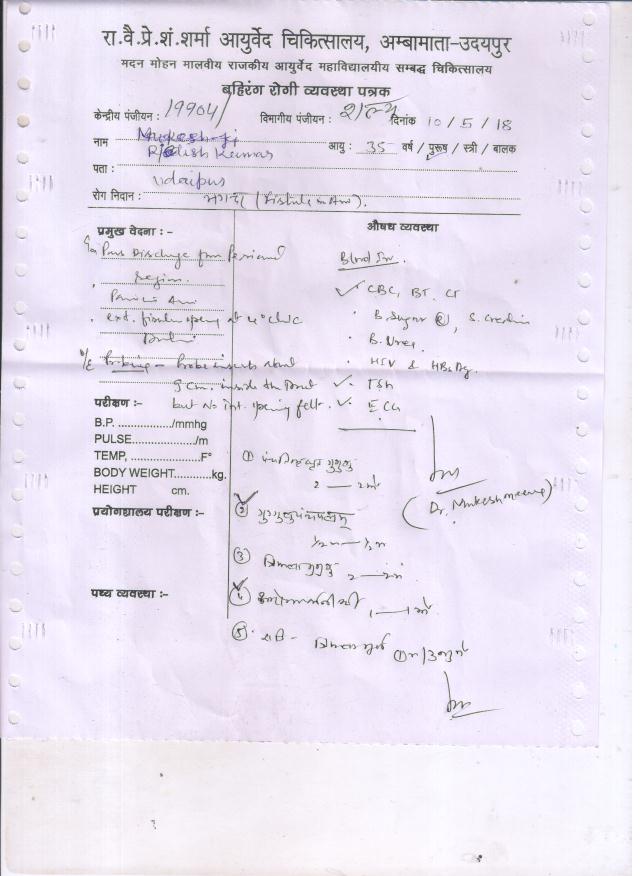 रा.वै.प्रे.शं.शर्मा आयुर्वेद चिकित्सालय, अम्बामाता-उदयपुर
मदन मोहन मालवीय राजकीय आयुर्वेद महाविद्यालयीय सम्बद्ध चिकित्सालय
बहिरंग रोगी व्यवस्था पत्रक
केन्द्रीय पंजीयन : 19904/ विभागीय पंजीयन : शल्य दिनांक 10/5/18
नाम
Kumar आयु : 35 वर्ष / पुरूष / स्त्री / बालक
पता : Udaipur
रोग निदान : भगन्दर (Fistula in Ano).
प्रमुख वेदना : - औषध व्यवस्था
Pus Discharge from Perianal Blood Inv.
region. CBC, BT. CT
Pain in Ano
ext. fistula opening at 4° clock B. Sugar R, S. Creatinine
B. Urea.
O/E Probing - Probe inserts about HIV & HBsAg.
5 cm. inside the TSH
परीक्षण :- but No int. opening felt. ECG
B.P. ............/mmhg
PULSE................/m
TEMP. ................F° ① गुग्गुलु
BODY WEIGHT...........kg. 2 — 2
HEIGHT cm. (Dr. Mukesh meena)
प्रयोगशाला परीक्षण :- ②
③ त्रिफला गुग्गुलु 2 — 2
पथ्य व्यवस्था :- ④ 1 — 1
⑤ रात्रि - त्रिफला चूर्ण